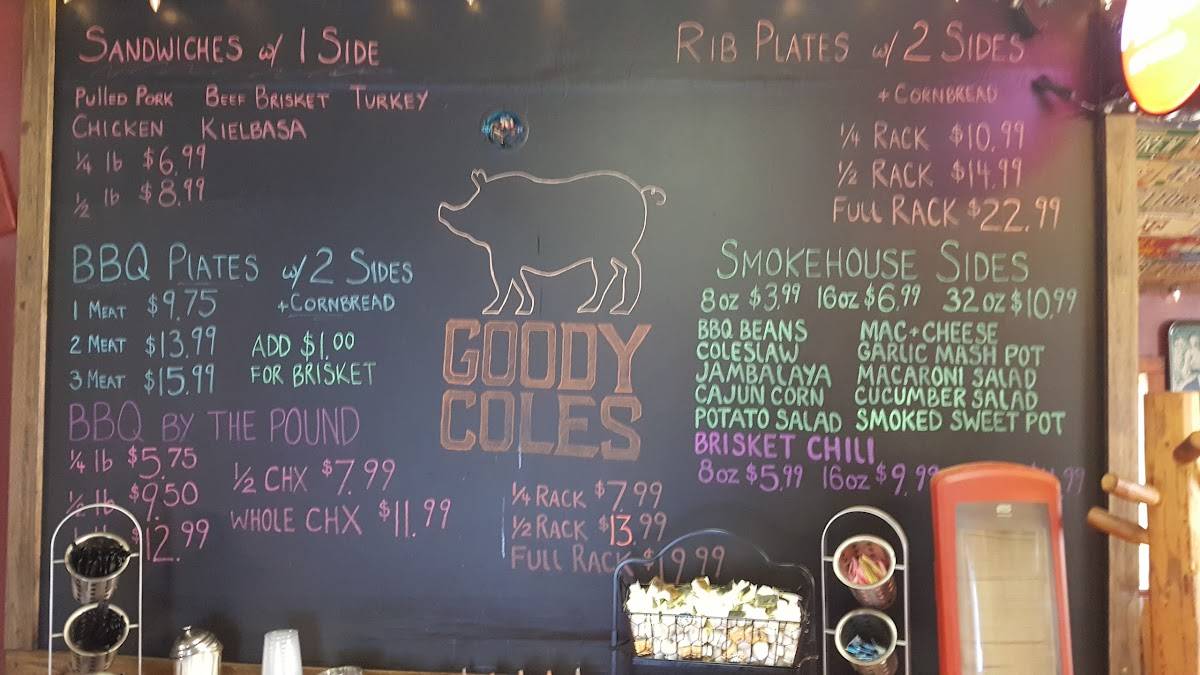 SANDWICHES w/ 1 SIDE
PULLED PORK BEEF BRISKET TURKEY
CHICKEN KIELBASA
1/4 lb $6.99
1/2 lb $8.99
BBQ PLATES w/ 2 SIDES
1 MEAT $9.75 +CORNBREAD
2 MEAT $13.99 ADD $1.00
3 MEAT $15.99 FOR BRISKET
BBQ BY THE POUND
1/4 lb $5.75
1/2 lb $9.50
$12.99
1/2 CHX $7.99
WHOLE CHX $11.99
GOODY
COLES
1/4 RACK $7.99
1/2 RACK $13.99
FULL RACK $19.99
RIB PLATES w/ 2 SIDES
+ CORNBREAD
1/4 RACK $10.99
1/2 RACK $14.99
FULL RACK $22.99
SMOKEHOUSE SIDES
8oz $3.99 16oz $6.99 32oz $10.99
BBQ BEANS MAC+CHEESE
COLESLAW GARLIC MASH POT
JAMBALAYA MACARONI SALAD
CAJUN CORN CUCUMBER SALAD
POTATO SALAD SMOKED SWEET POT
BRISKET CHILI
8oz $5.99 16oz $9.99